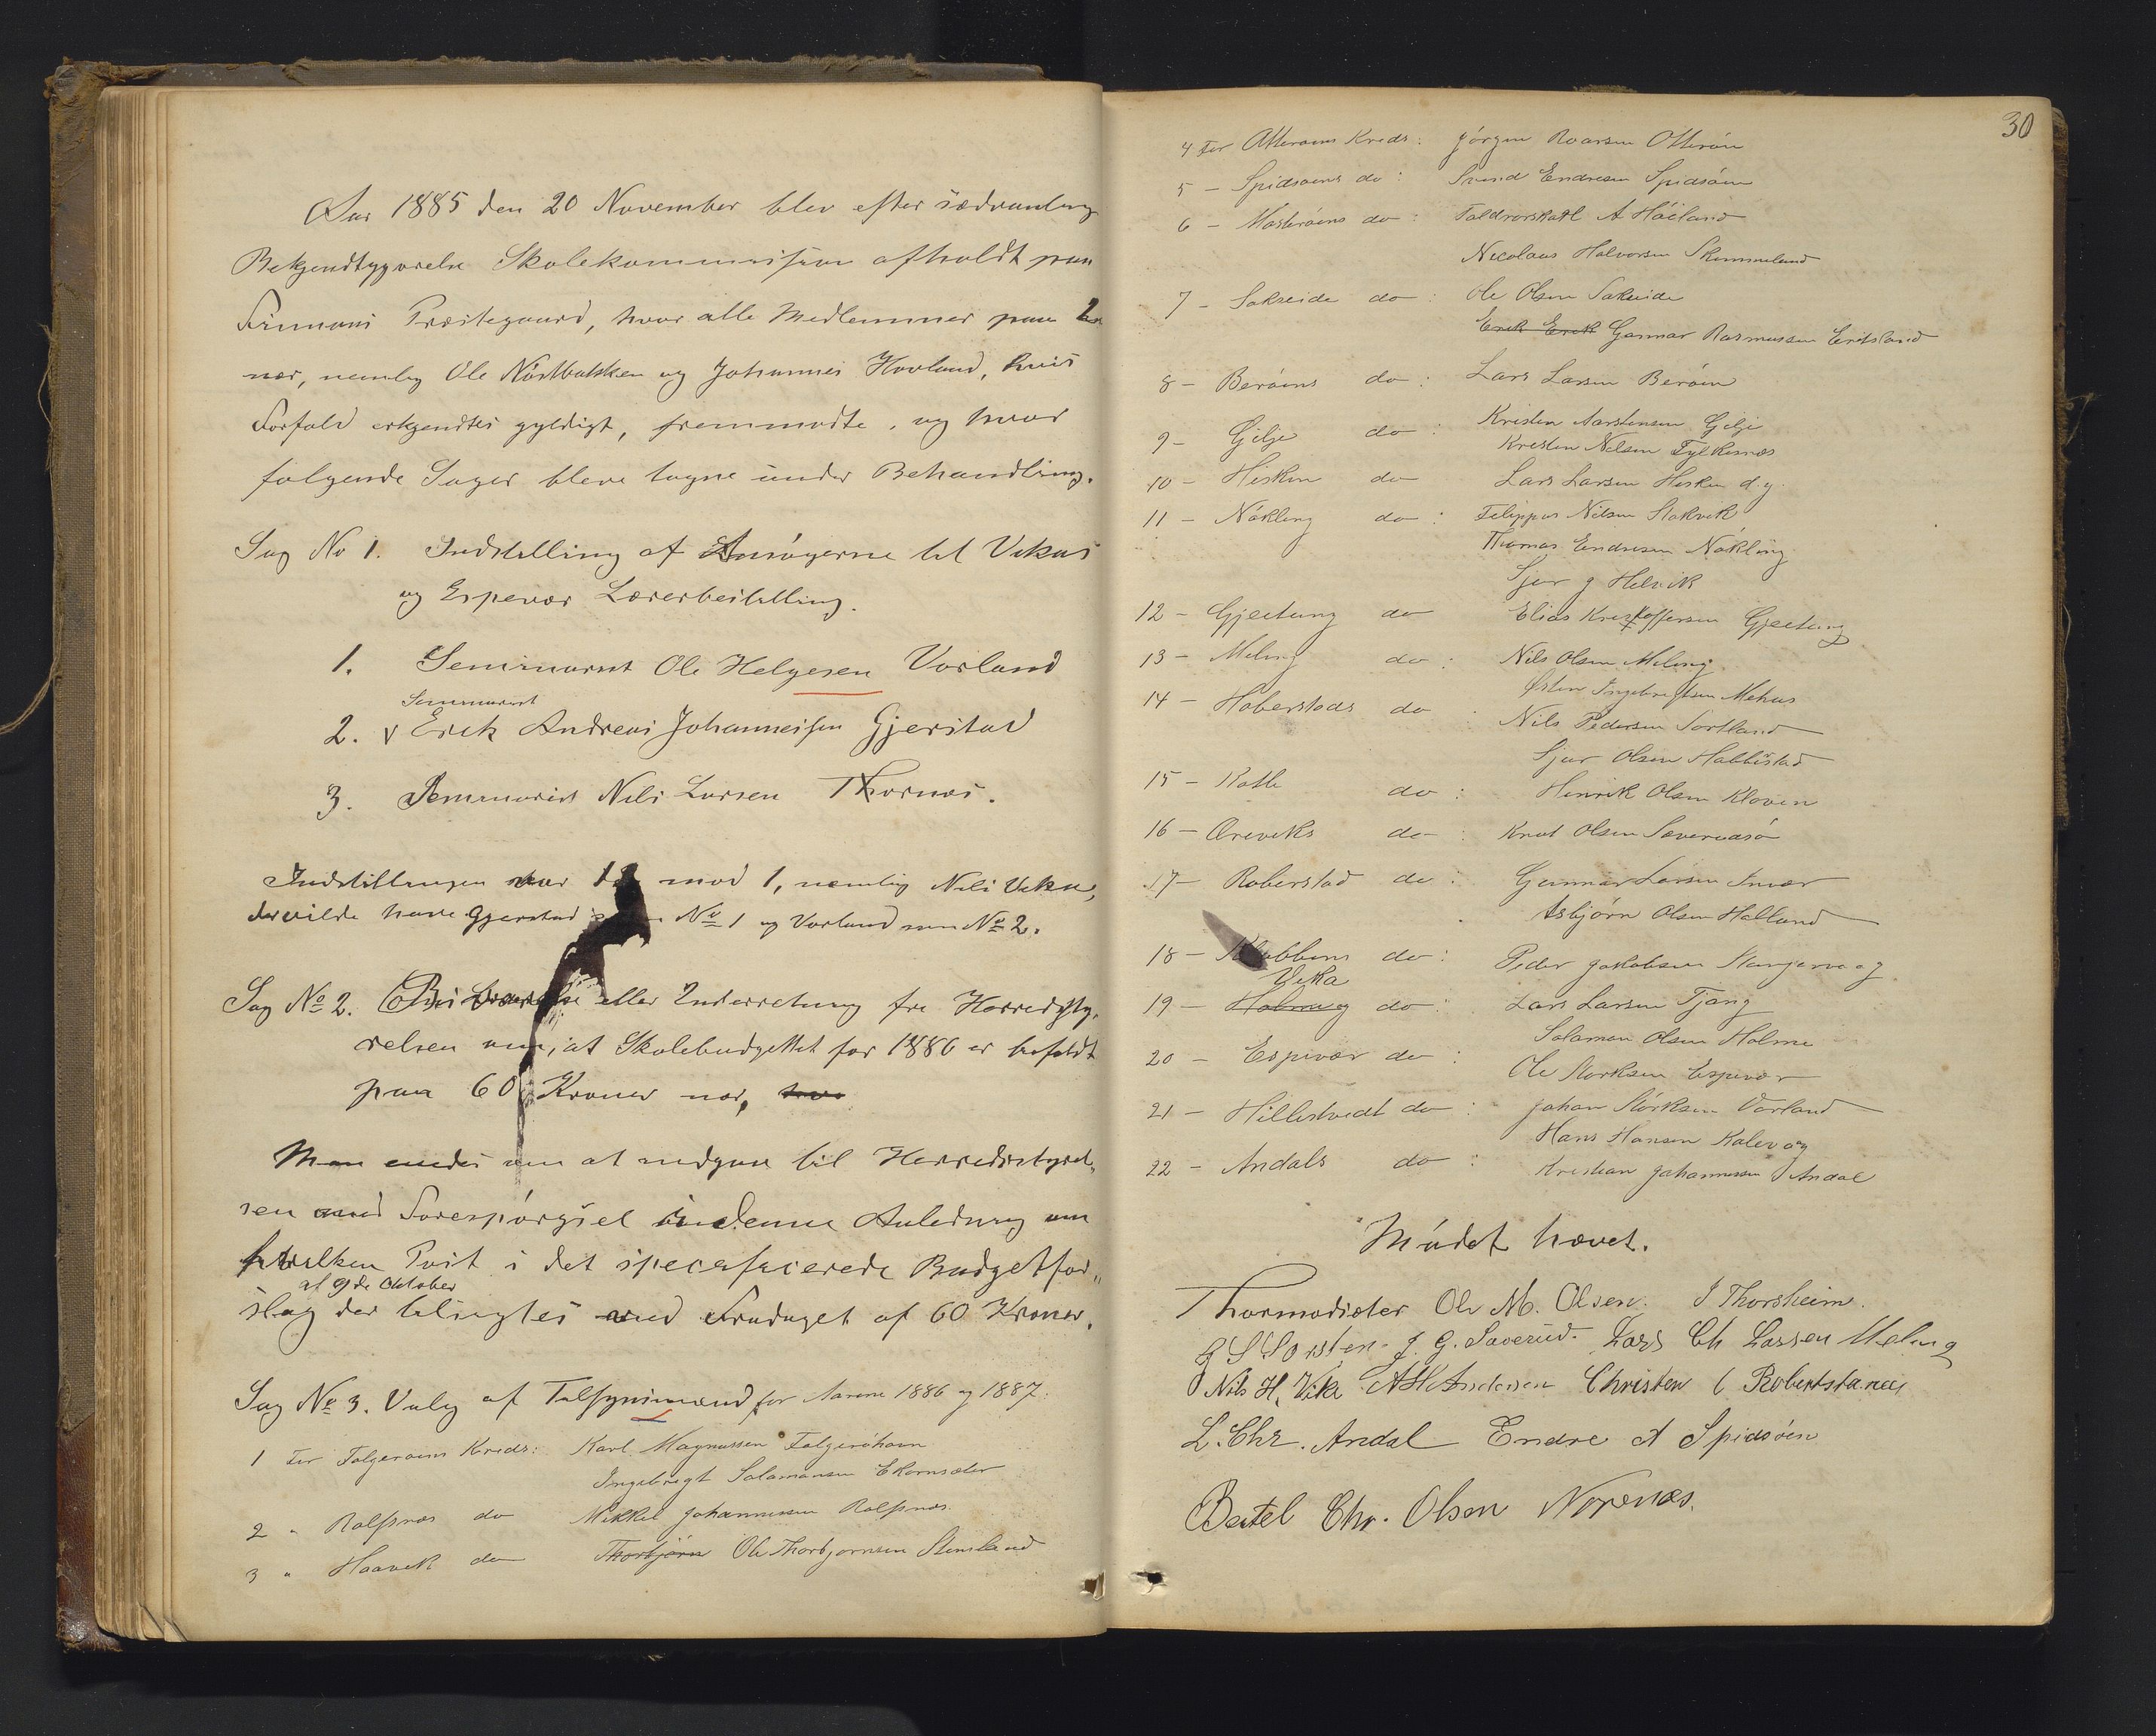 Aar 1885 den 20 November blev efter sædvanlig
Bekjendtgjørelse Skolekommission afholdt paa
Finnaas Præstegaard, hvor alle Medlemmer paa
nær, nemlig Ole Nórdbakken og Johannes Hovland, hvis
Forfald erkjendtes gyldigt, fremmødte, og hvor
følgende Sager bleve tagne under Behandling.
Sag No 1. Indstilling af Ansøgerne til Vikas
og Espevær Lærerbestilling.
1. Seminarist Ole Helgesen Vorland
Seminarist
2. v Erik Andreas Johannessen Gjerstad
3. Seminarist Nils Larsen Thornæs.
Indstillingen var mod 1, nemlig Nils Vika,
der vilde have Gjerstad No 1 og Vorland som No 2.
Sag No 2. eller Underretning fra Herredsty-
relsen om, at Skolebudgettet for 1886 er
paa 60 Kroner nær,
Man enedes om at andgaa til Herredsstyrel-
sen med Forespórgsel i denne Anledning om
hvilken Post i det specificerede Budgetfor-
af 9de Oktober
slag der besigtes ved Fradraget af 60 Kroner.
Sag No 3. Valg af Tilsynsmænd for Aarene 1886 og 1887.
1 For Folgeróens Kreds: Karl Magnussen Folgeróhavn
Ingebrigt Salamonsen Ekornsæter
2 " Rolfsnæs do Mikkel Johannessen Rolfsnæs
3 " Haavik do Thorbjórn Ole Thorbjornsen Stensland
30
4 For Otteróens Kreds: Jórgen Roarsen Otteróen
5 - Spidsóens do: Svend Endresen Spidsóen
6 - Mosteróens do: Toldrorskarl A Háóland
Nicolaus Halvorsen Skimmeland
7 - Sakseide do: Ole Olsen Sakseide
Erik Erik Gunnar Rasmussen Eidsland
8 - Beróens do: Lars Larsen Beróen
9 - Gilje do: Kristen Aarstensen Gilje
Kristen Nilsen Fylkesnæs
10 - Hisken do Lars Larsen Hisken d.y.
11 - Nókling do: Filippus Nilsen Stokvik
Thomas Endresen Nókling
Sjur J Helvik
12 - Gjeitung do Elias Kristoffersen Gjeitung
13 - Meling do: Nils Olsen Meling
Østen Ingebrigtsen Mehus
14 - Hoberstads do: Nils Pedersen Sortland
Sjur Olsen Habbestad
15 - Katle do: Henrik Olsen Kloven
16 - Ørevíks do: Knut Olsen Sæveraasó
17 - Roberstad do: Gunnar Larsen Innvær
Asbjórn Olsen Halland
18 - Klubbens do: Peder Jakobsen Stangevaag
Vika
19 - Holme g do: Lars Larsen Tjong
Salamon Olsen Holme
20 - Espevær do: Ole Storksen Espevær
21 - Hillestvedt do: Johan Stórksen Vorland
Hans Hansen Kalevaag
22 - Andals do: Kristian Johannessen Andal
Módet hævet.
Thormodsæter Ole M. Olsen. I Thorsheim.
J. G. Saverud. Lars Ch Larsen Meling
Nils H. Vika A H Andersen Christen Robertstanæs
L. Chr. Andal Endre A Spidsóen
Bertel Chr. Olsen Norenæs.